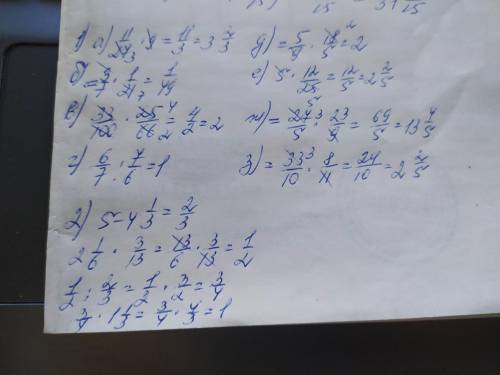 15   15
1) а) 11/27 · 9 = 11/3 = 3 2/3   д) = 5/9 · 18/5 = 2
б) = 3/7 · 1/21 = 1/49   е) 5 · 12/25 = 12/5 = 2 2/5
в) 33/100 · 25/66 = 4/2 = 2   ж) = 27/5 · 23/9 = 69/5 = 13 4/5
г) 6/7 · 7/6 = 1   з) = 33/10 · 8/11 = 24/10 = 2 2/5
2) 5 - 4 1/3 = 2/3
2 1/6 · 3/13 = 13/6 · 3/13 = 1/2
1/2 : 2/3 = 1/2 · 3/2 = 3/4
3/4 · 1 1/3 = 3/4 · 4/3 = 1